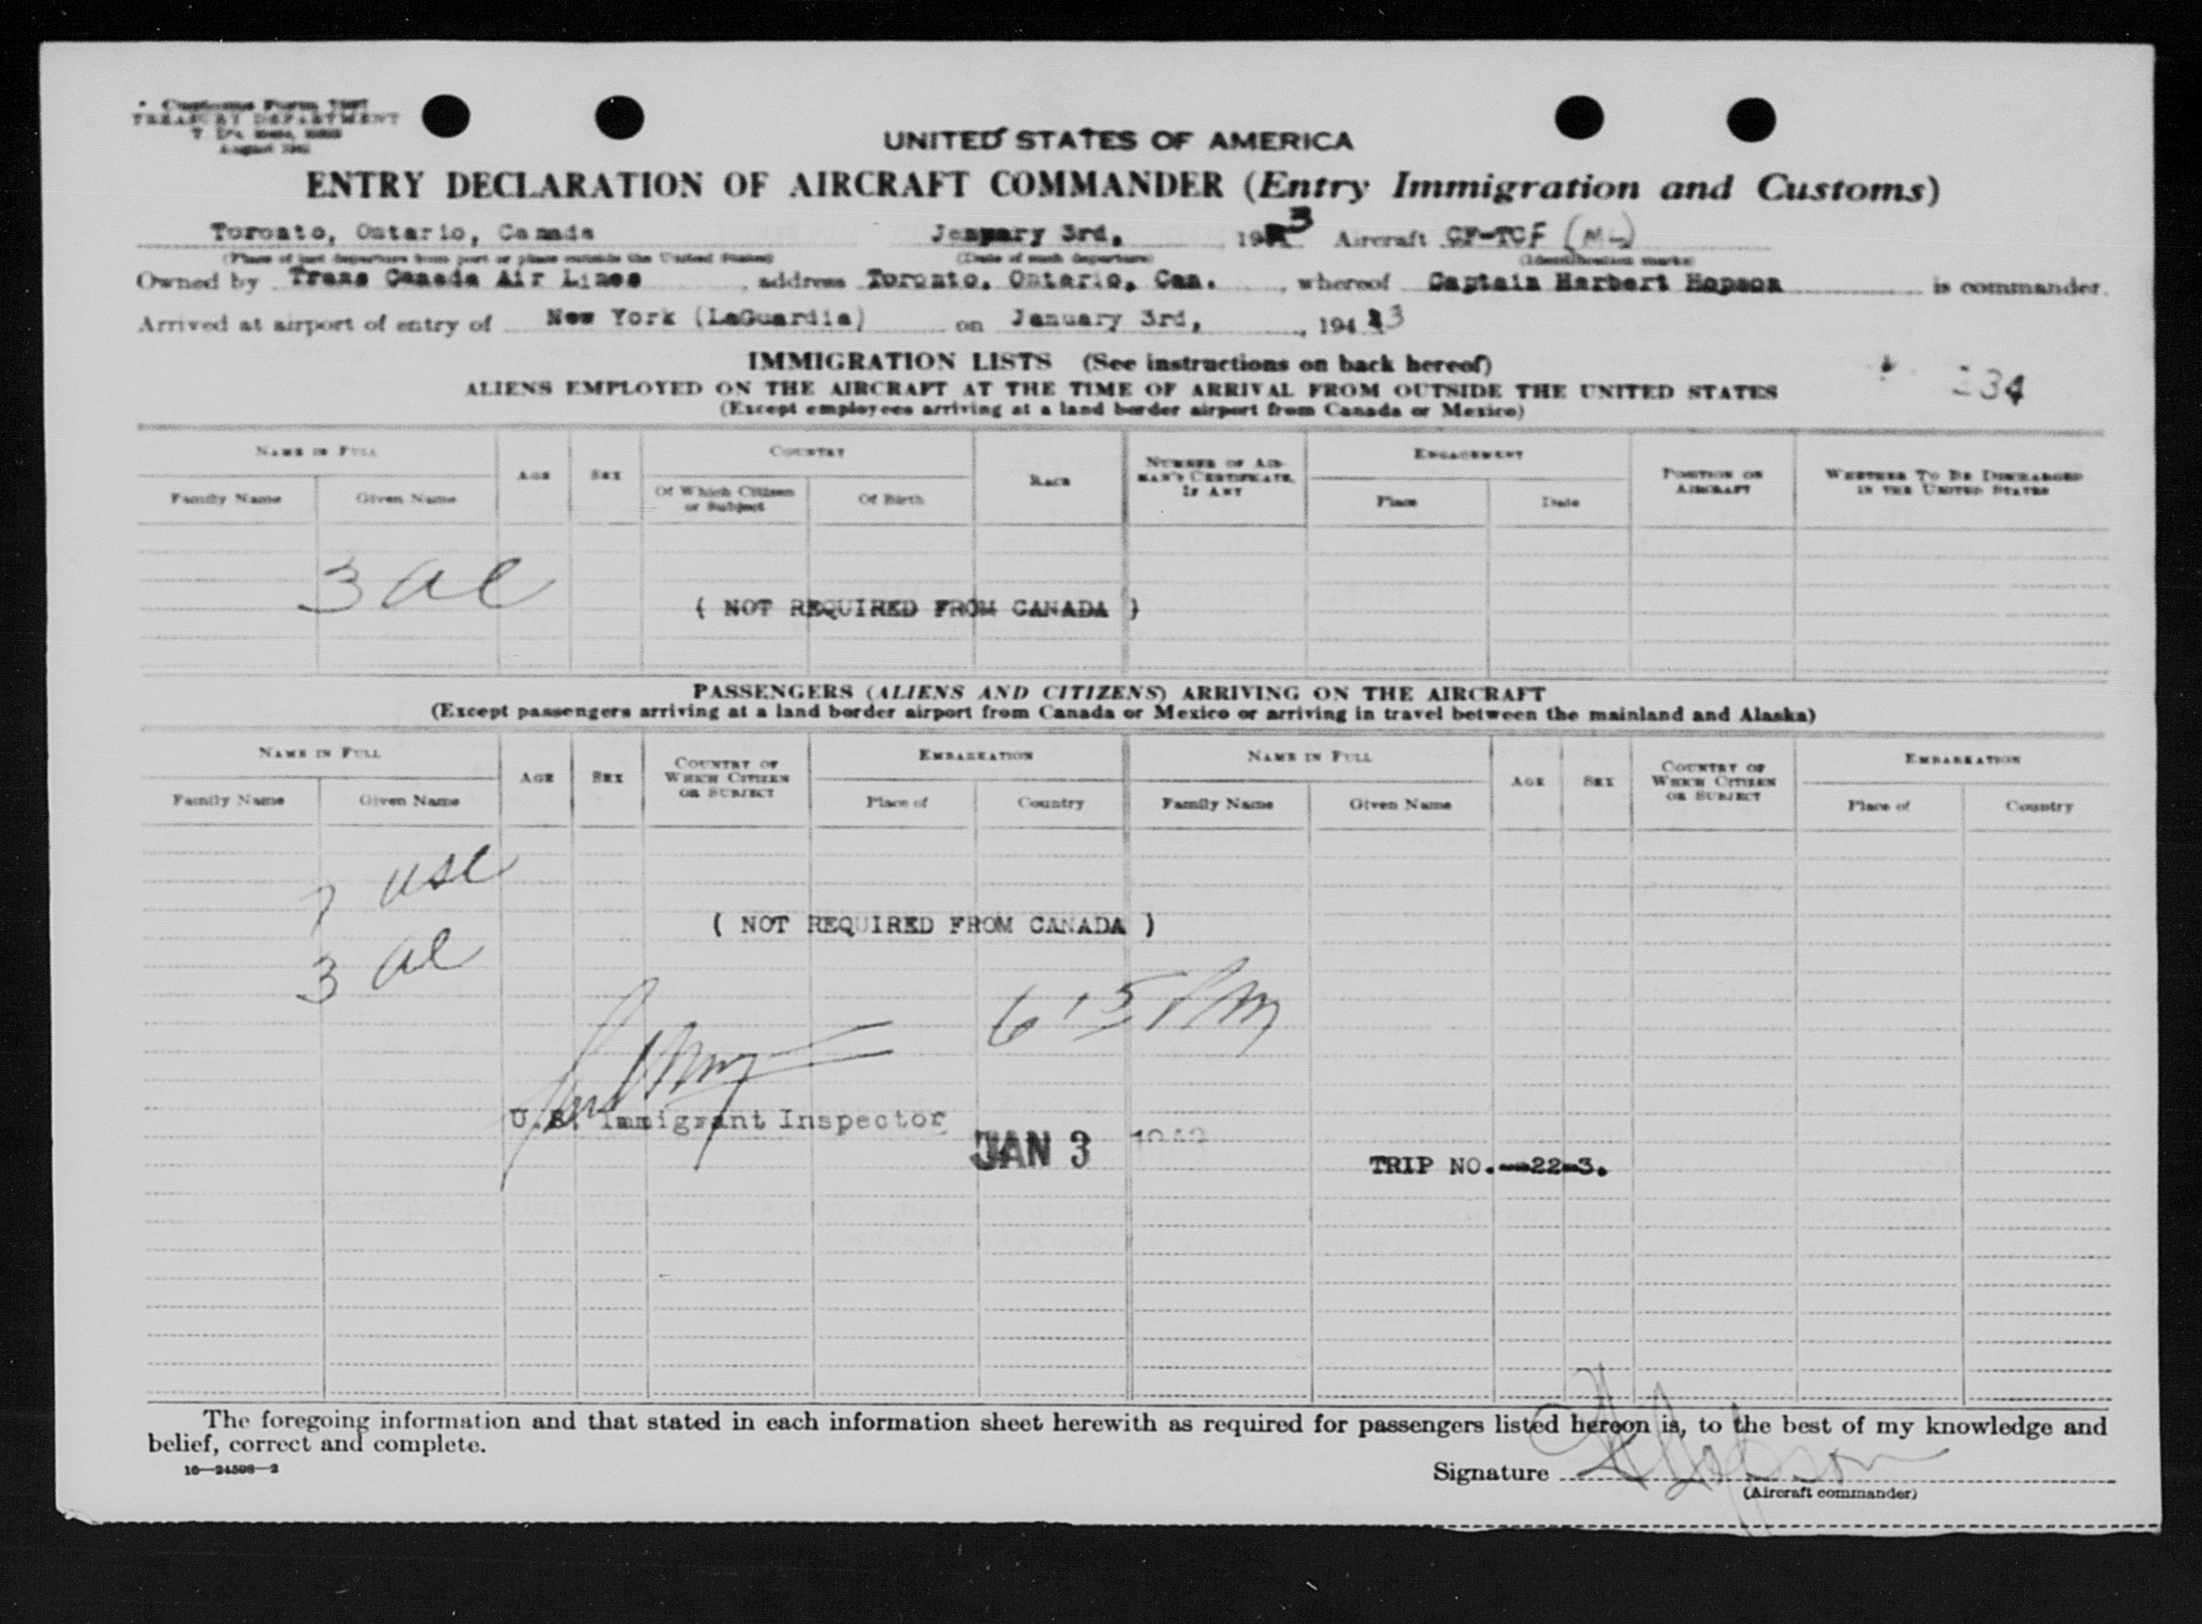 TREASURY DEPARTMENT
UNITED STATES OF AMERICA
ENTRY DECLARATION OF AIRCRAFT COMMANDER (Entry Immigration and Customs)
Toronto, Ontario, Canada January 3rd, 19 3 Aircraft CF-TCF (ML)
(Place of last departure from port or place outside the United States) (Date of such departure) (Identification marks)
Owned by Trans Canada Air Lines, address Toronto, Ontario, Can., whereof Captain Harbert Hopson is commander.
Arrived at airport of entry of New York (LaGuardia) on January 3rd, , 194 3
IMMIGRATION LISTS (See instructions on back hereof)
34
ALIENS EMPLOYED ON THE AIRCRAFT AT THE TIME OF ARRIVAL FROM OUTSIDE THE UNITED STATES
(Except employees arriving at a land border airport from Canada or Mexico)
NAME IN FULL AGE SEX COUNTRY RACE NUMBER OF AIRMAN'S CERTIFICATE, IF ANY ENGAGEMENT POSITION ON AIRCRAFT WHETHER TO BE DISCHARGED IN THE UNITED STATES
Family Name Given Name Of Which Citizen or Subject Of Birth Place Date
3 al
( NOT REQUIRED FROM CANADA )
PASSENGERS (ALIENS AND CITIZENS) ARRIVING ON THE AIRCRAFT
(Except passengers arriving at a land border airport from Canada or Mexico or arriving in travel between the mainland and Alaska)
NAME IN FULL AGE SEX COUNTRY OF WHICH CITIZEN OR SUBJECT EMBARKATION NAME IN FULL AGE SEX COUNTRY OF WHICH CITIZEN OR SUBJECT EMBARKATION
Family Name Given Name Place of Country Family Name Given Name Place of Country
7 usc
( NOT REQUIRED FROM CANADA )
3 al
615 PM
U.S. Immigrant Inspector
JAN 3 1943
TRIP NO.--22-3.
The foregoing information and that stated in each information sheet herewith as required for passengers listed hereon is, to the best of my knowledge and
belief, correct and complete.
16—24598—2
Signature H Hopson
(Aircraft commander)